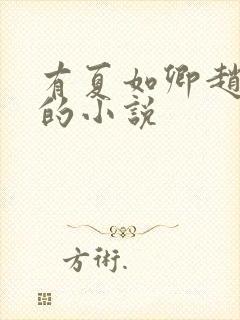 有夏如卿趙
的小說
方術.